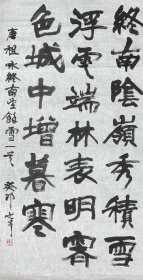 終南陰嶺秀積雪
浮雲端林表明霽
色城中增暮寒
唐祖咏終南望餘雪一首
癸卯